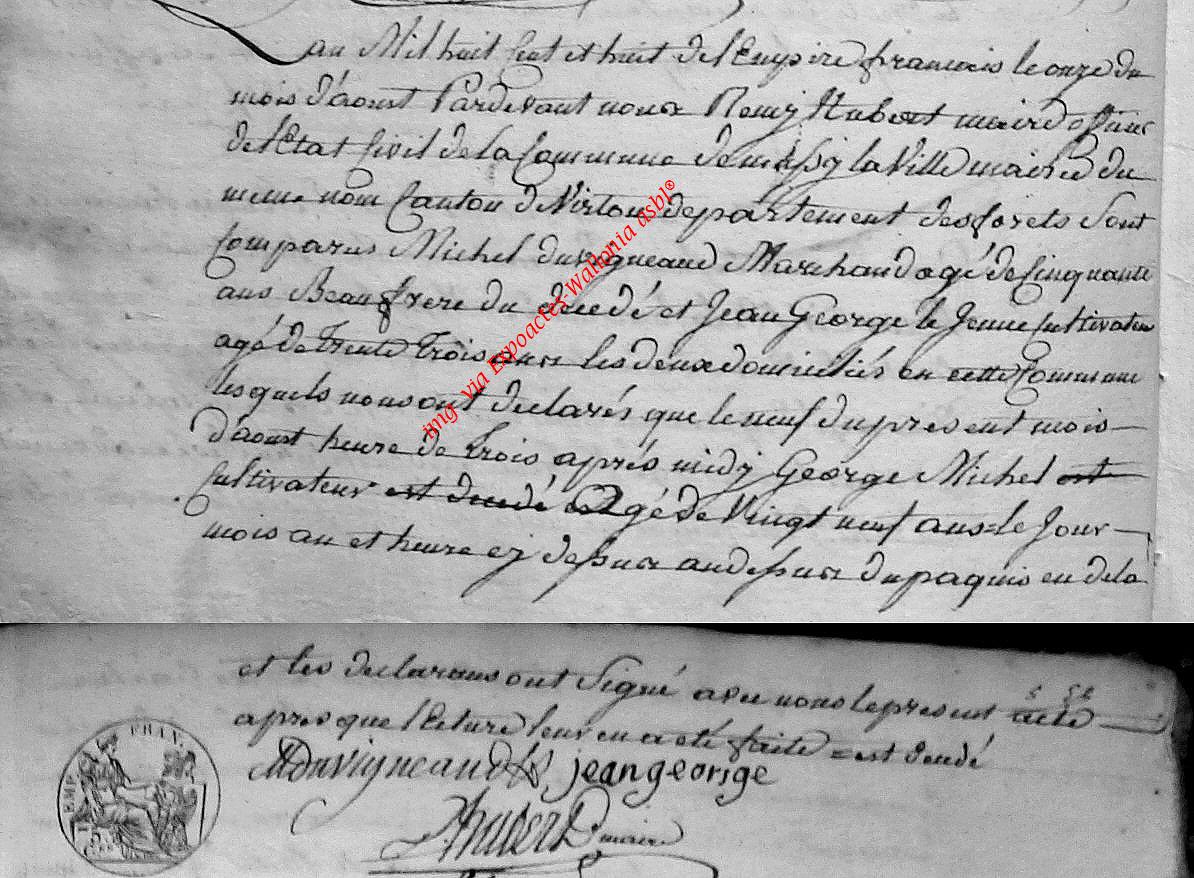 Lan Mil huit Cent et huit de l'Empire francois le onze du
mois d'aoust Pardevant nous Remy Hubert maire officier
de l'Etat Civil de la Commune de mussy la Ville mairie du
meme nom Canton de Virton departement des forets Sont
Comparus Michel duvigneaud Marchand agé de Cinquante
ans Beau frere du decedé et Jean George le Jeune Cultivateur
agé de trente trois ans les deux domiciliés en cette Commune
les quels nous ont declarés que le neuf du present mois
d'aoust heure de trois aprés midy George Michel est
Cultivateur est decedé agé de Vingt neuf ans = le Jour
mois an et heure cy dessus au dessus du paquis en dela
et les declarans ont Signé avec nous le present acte
apres que lecture leur en a eté faite = est decedé
MDuvigneaud jean george
RHubert maire
EMP. FRAN.
img via Expoactes-Wallonia asbl©